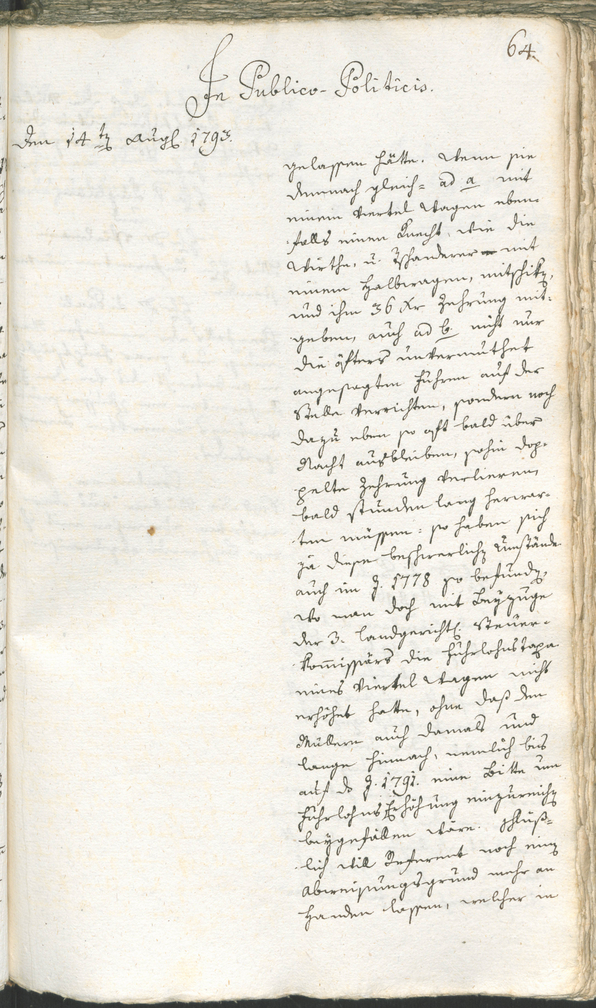 64.
In Publico-Politicis.
den 14t Augst 1793.
gelassen hätte. Wenn sie
demnach gleich= ad a mit
einem Viertel Wagen eben=
falls einen Knecht, wie die
Wirthe, u. Tschanderer mit
einem Halbwagen, mitschikn,
und ihm 36 Xr Zehrung mit=
geben, auch ad b nicht nur
die öfters unvermuthet
angesagten Fuhren auf der
Stelle verrichten, sondern noch
dazu eben so oft bald über
Nacht ausbleiben, sohin dop=
pelte Zehrung verlieren,
bald Stunden lang herwar=
ten müssen: so haben sich
ja diese beschwerlichn Umstände
auch im J. 1778 so befundn,
wo man doch mit Beyzuge
der 3. landgerichtl. Steuer=
Kommissärs die Fuhrlohnstaxa
eines Viertel Wagen nicht
erhöhet hatte, ohne daß den
Müllern auch damals und
lange hinnach, nemlich bis
auf dß J. 1791. eine Bitte um
Fuhrlohns Erhöhung einzureichn
beygefallen wäre. Schlüß=
lich will Referent noch einn
Abweisungsgrund mehr an
Handen lassen, welcher in